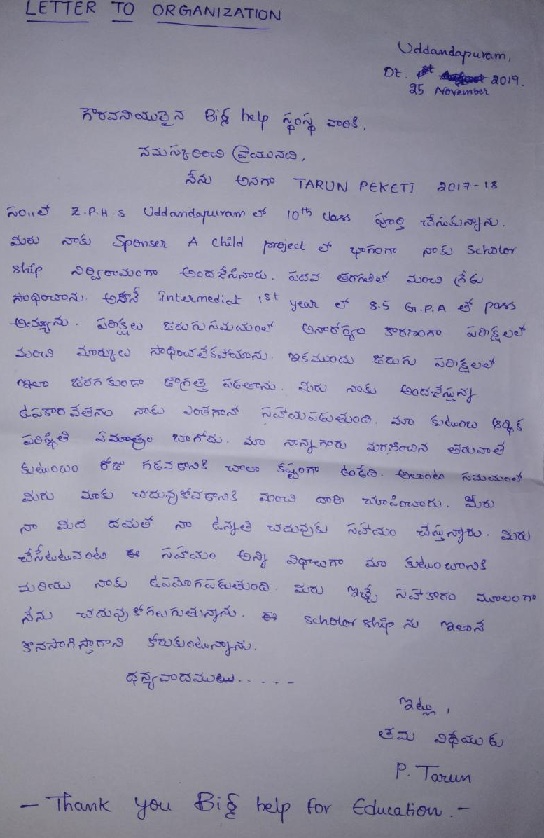 LETTER TO ORGANIZATION
Uddandapuram,
Dt. 2019.
25 November
గౌరవనీయులైన Big help స్వచ్ఛంద వారికి,
నమస్కరించి వ్రాయునది,
నేను అనగా TARUN PEKETI 2017-18
సం॥లో Z.P.H.S Uddandapuram లో 10th class పూర్తి చేసుకున్నాను.
మీరు నాకు Sponser A child project లో భాగంగా నాకు scholor
ship నిర్విరామంగా అందజేసినారు. పదవ తరగతిలో మంచి గ్రేడు
సాధించాను. అలానే Intermediat 1st year లో 8.5 G.P.A తో pass
అయ్యాను. పరీక్షలు జరుగుసమయంలో అనారోగ్యం కారణంగా పరీక్షలలో
మంచి మార్కులు సాధించలేకపోయాను. ఇకముందు జరుగు పరీక్షలలో
ఇలా జరగకుండా జాగ్రత్త పడతాను. మీరు నాకు అందచేస్తున్న
ఉపకారవేతనం నాకు ఎంతగానో సహాయపడుతుంది. మా కుటుంబ ఆర్థిక
పరిస్థితి ఏమాత్రం బాగోదు. మా నాన్నగారు మరణించిన తరువాత
కుటుంబం రోజు గడవడానికి చాలా కష్టంగా ఉండేది. అటువంటి సమయంలో
మీరు మాకు చదువుకోవడానికి మంచి దారి చూపించారు. మీరు
నా మీద దయతో నా ఉన్నత చదువుకు సహాయం చేస్తున్నారు. మీరు
చేసేటటువంటి ఈ సహాయం అన్ని విధాలుగా మా కుటుంబానికి
మరియు నాకు ఉపయోగపడుతుంది. మీరు ఇచ్చే సహకారం మూలంగా
నేను చదువుకోగలుగుతున్నాను. ఈ scholor ship ను ఇలానే
కొనసాగిస్తారాని కోరుకుంటున్నాను.
ధన్యవాదములు.....
ఇట్లు,
తమ విధేయుడు
P. Tarun
- Thank you Big help for Education. -